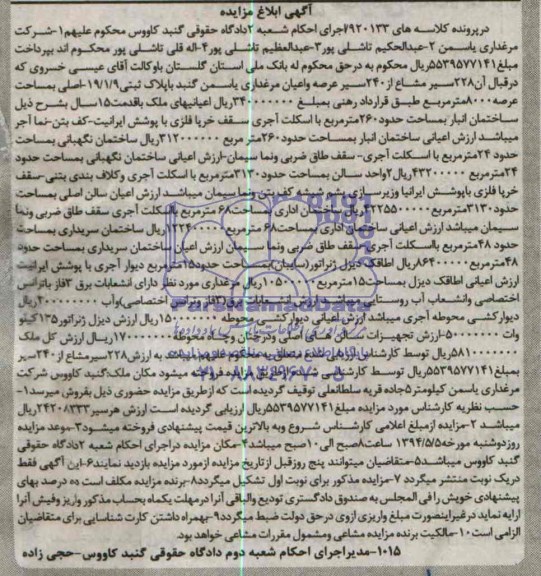 آگهی ابلاغ مزایده
درپرونده کلاسه های ۹۲۰۱۳۳/اجرای احکام شعبه ۲دادگاه حقوقی گنبد کاووس محکوم علیهم۱-شرکت
مرغداری یاسمن ۲-عبدالحکیم تاشلی پور۳-عبدالعظیم تاشلی پور۴-اله قلی تاشلی پور محکوم اند بپرداخت
مبلغ۵۵۳۹۵۷۷۱۴۱ریال محکوم به درحق محکوم له بانک ملی استان گلستان باوکالت آقای عیسی خسروی که
درقبال آن۲۲۸سیر مشاع از۲۴۰سیر عرصه واعیان مرغداری یاسمن گنبد باپلاک ثبتی۱۹/۱/۹-اصلی بمساحت
عرصه۸۰۰۰مترمربع طبق قرارداد رهنی بمبلغ ۳۴۰۰۰۰۰۰۰ریال اعیانیهای ملک باقدمت۱۵سال بشرح ذیل
ساختمان انبار بمساحت حدود۲۶۰مترمربع با اسکلت آجری سقف خرپا فلزی با پوشش ایرانیت-کف بتن-نما آجر
میباشد ارزش اعیانی ساختمان انبار بمساحت حدود۲۶۰متر مربع ۳۱۲۰۰۰۰۰۰ریال ساختمان نگهبانی بمساحت
حدود ۲۴مترمربع با اسکلت آجری-سقف طاق ضربی ونما سیمان-ارزش اعیانی ساختمان نگهبانی بمساحت حدود
۲۴مترمربع ۴۳۲۰۰۰۰۰ریال۲واحد سالن بمساحت حدود۳۱۳۰مترمربع با اسکلت آجری وکلاف بندی بتنی-سقف
خرپا فلزی باپوشش ایرانیا وزیرسازی پشم شیشه کف بتن ونما سیمان میباشد ارزش اعیان سالن اصلی بمساحت
حدود۳۱۳۰مترمربع۴۲۲۵۵۰۰۰۰۰ریال ساختمان اداری بمساحت۶۸مترمربع بااسکلت آجری سقف طاق ضربی ونما
سیمان میباشد ارزش اعیانی ساختمان اداری بمساحت۶۸مترمربع۱۲۲۴۰۰۰۰۰ریال ساختمان سریداری بمساحت
حدود ۴۸مترمربع بااسکلت آجری-سقف طاق ضربی ونما سیمان ارزش اعیان ساختمان سریداری بمساحت حدود
۴۸مترمربع۸۶۴۰۰۰۰۰ریال اطاقک دیزل ژنراتور(سایبان)بمساحت حدود۱۵مترمربع دیوار آجری با پوشش ایرانیت
ارزش اعیانی اطاقک دیزل بمساحت۱۵مترمربع۱۰۵۰۰۰۰۰ریال مرغداری مورد نظر دارای انشعابات برق ۳فاز باترانس
اختصاصی وانشعاب آب روستایی میباشد ارزش انشعابات برق(۳فاز وترانس اختصاصی)وآب ۲۰۰۰۰۰۰۰۰ریال
دیوارکشی محوطه آجری میباشد ارزش اعیانی دیوارکشی محوطه ۱۵۰۰۰۰۰۰۰ریال ارزش دیزل ژنراتور۱۳۵کیلو
وات ۵۰۰۰۰۰۰۰-ارزش تجهیزات سالن های اصلی ودرختان وچاه محوطه۱۷۰۰۰۰۰۰۰ریال ارزش کل ملک
۵۸۱۰۰۰۰۰۰۰ریال توسط کارشناس ارزیابی متعلق به محکوم علیهم میباشد به ارزش۲۲۸سیرمشاع از۲۴۰سیر
بمبلغ۵۵۳۹۵۷۷۱۴۱ریال توسط کارشناس شده وازطریق مزایده فروخته میشود مکان ملک:گنبد کاووس شرکت
مرغداری یاسمن کیلومتر۵جاده قریه سلطانعلی توقیف گردیده است که ازطریق مزایده حضوری ذیل بفروش میرسد۱-
حسب نظریه کارشناس مورد مزایده مبلغ۵۵۳۹۵۷۷۱۴۱ریال ارزیابی گردیده است ارزش هرسیر۲۴۲۰۸۳۳۳ریال
میباشد ۲-مزایده ازمبلغ اعلامی کارشناس شروع وبه بالاترین قیمت پیشنهادی فروخته میشود۳-موعد مزایده
روزدوشنبه مورخه۱۳۹۴/۵/۵ ساعت۸صبح الی۱۰صبح میباشد۴-مکان مزایده دراجرای احکام شعبه ۲دادگاه حقوقی
گنبد کاووس میباشد۵-متقاضیان میتوانند پنج روزقبل ازتاریخ مزایده ازمورد مزایده بازدید نمایند۶-این آگهی فقط
دریک نوبت منتشر میگردد ۷-مزایده مذکور برای نوبت اول تشکیل میگردد۸-برنده مزایده مکلف است ده درصد بهای
پیشنهادی خویش را فی المجلس به صندوق دادگستری تودیع والباقی آنرا درمهلت یکماه بحساب مذکور واریز وفیش آنرا
ارایه نماید درغیراینصورت مبلغ واریزی ازوی درحق دولت ضبط میگردد۹-بهمراه داشتن کارت شناسایی برای متقاضیان
الزامی است۱۰-مالکیت برنده مزایده مشاعی ومشمول مقررات مشاعی خواهد بود.
۱۰۱۵-مدیراجرای احکام شعبه دوم دادگاه حقوقی گنبد کاووس-حجی زاده